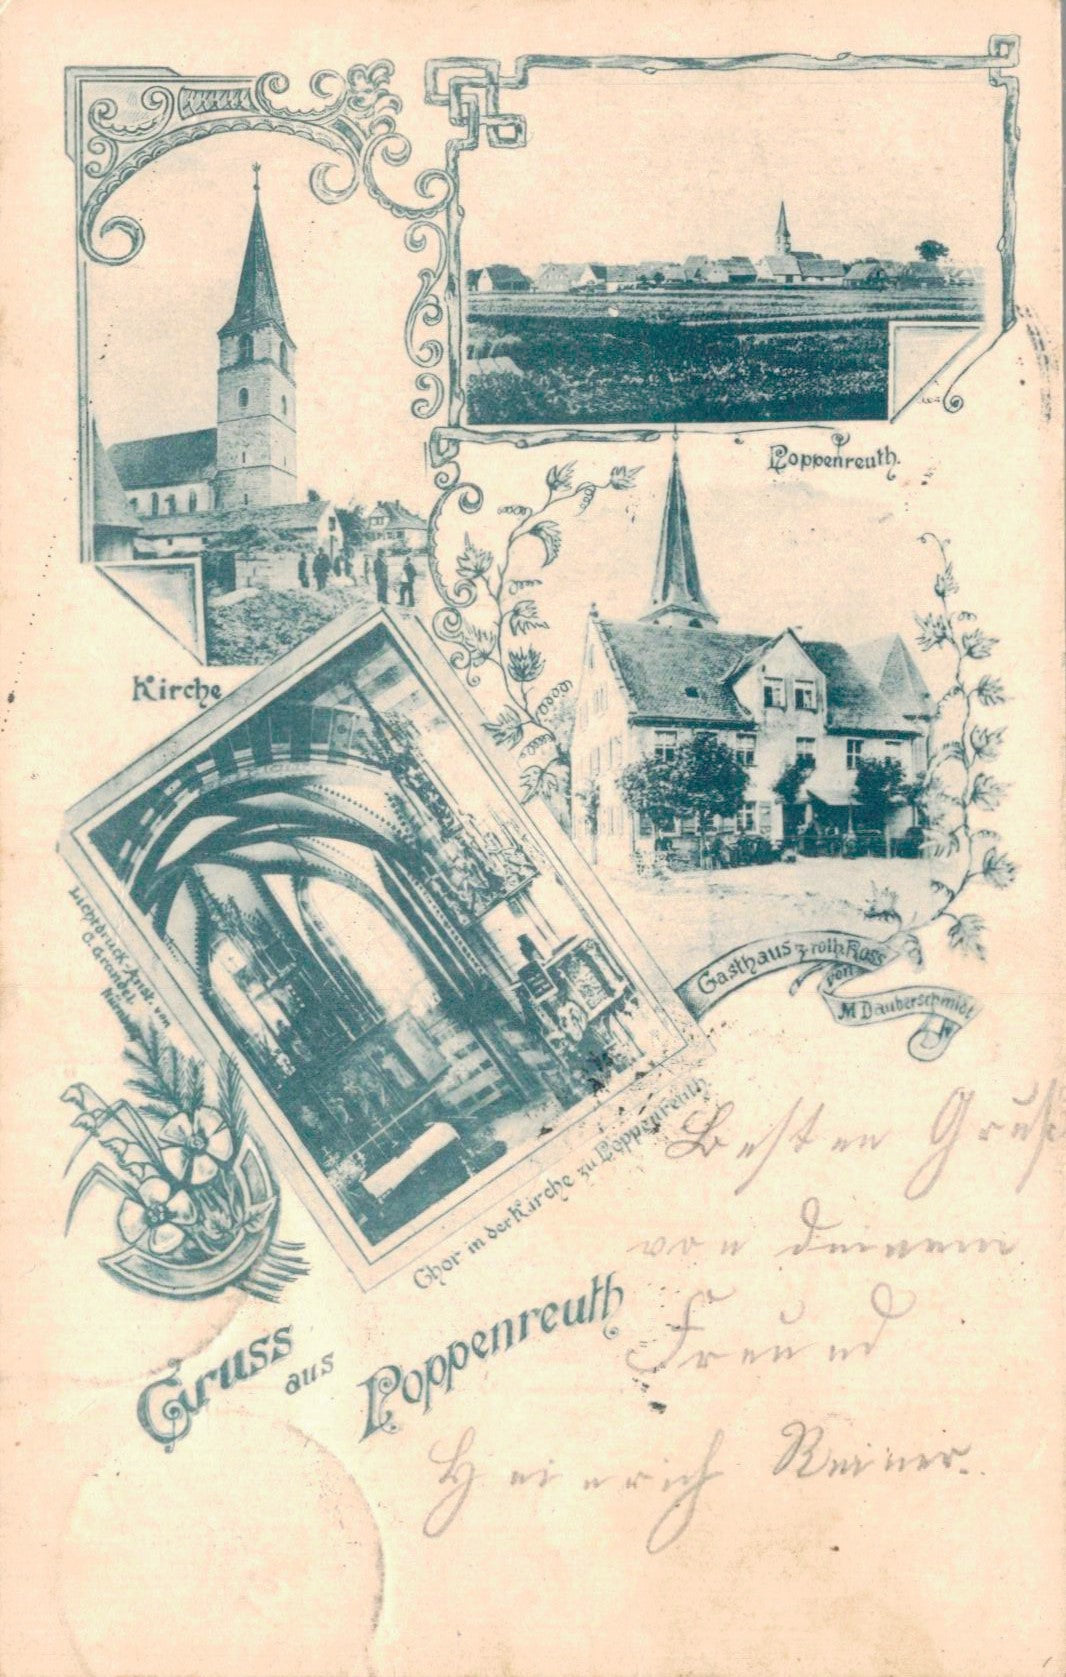 Poppenreuth.
Kirche
Gasthaus z. roth. Ross
von
M Dauberschmidt
Lichtdruck-Anst. von
G. Grandel
Nürnb
Chor in der Kirche zu Poppenreuth
Gruss
aus
Poppenreuth
Besten Gruß
von deinem
Freund
Heinrich Reiner.